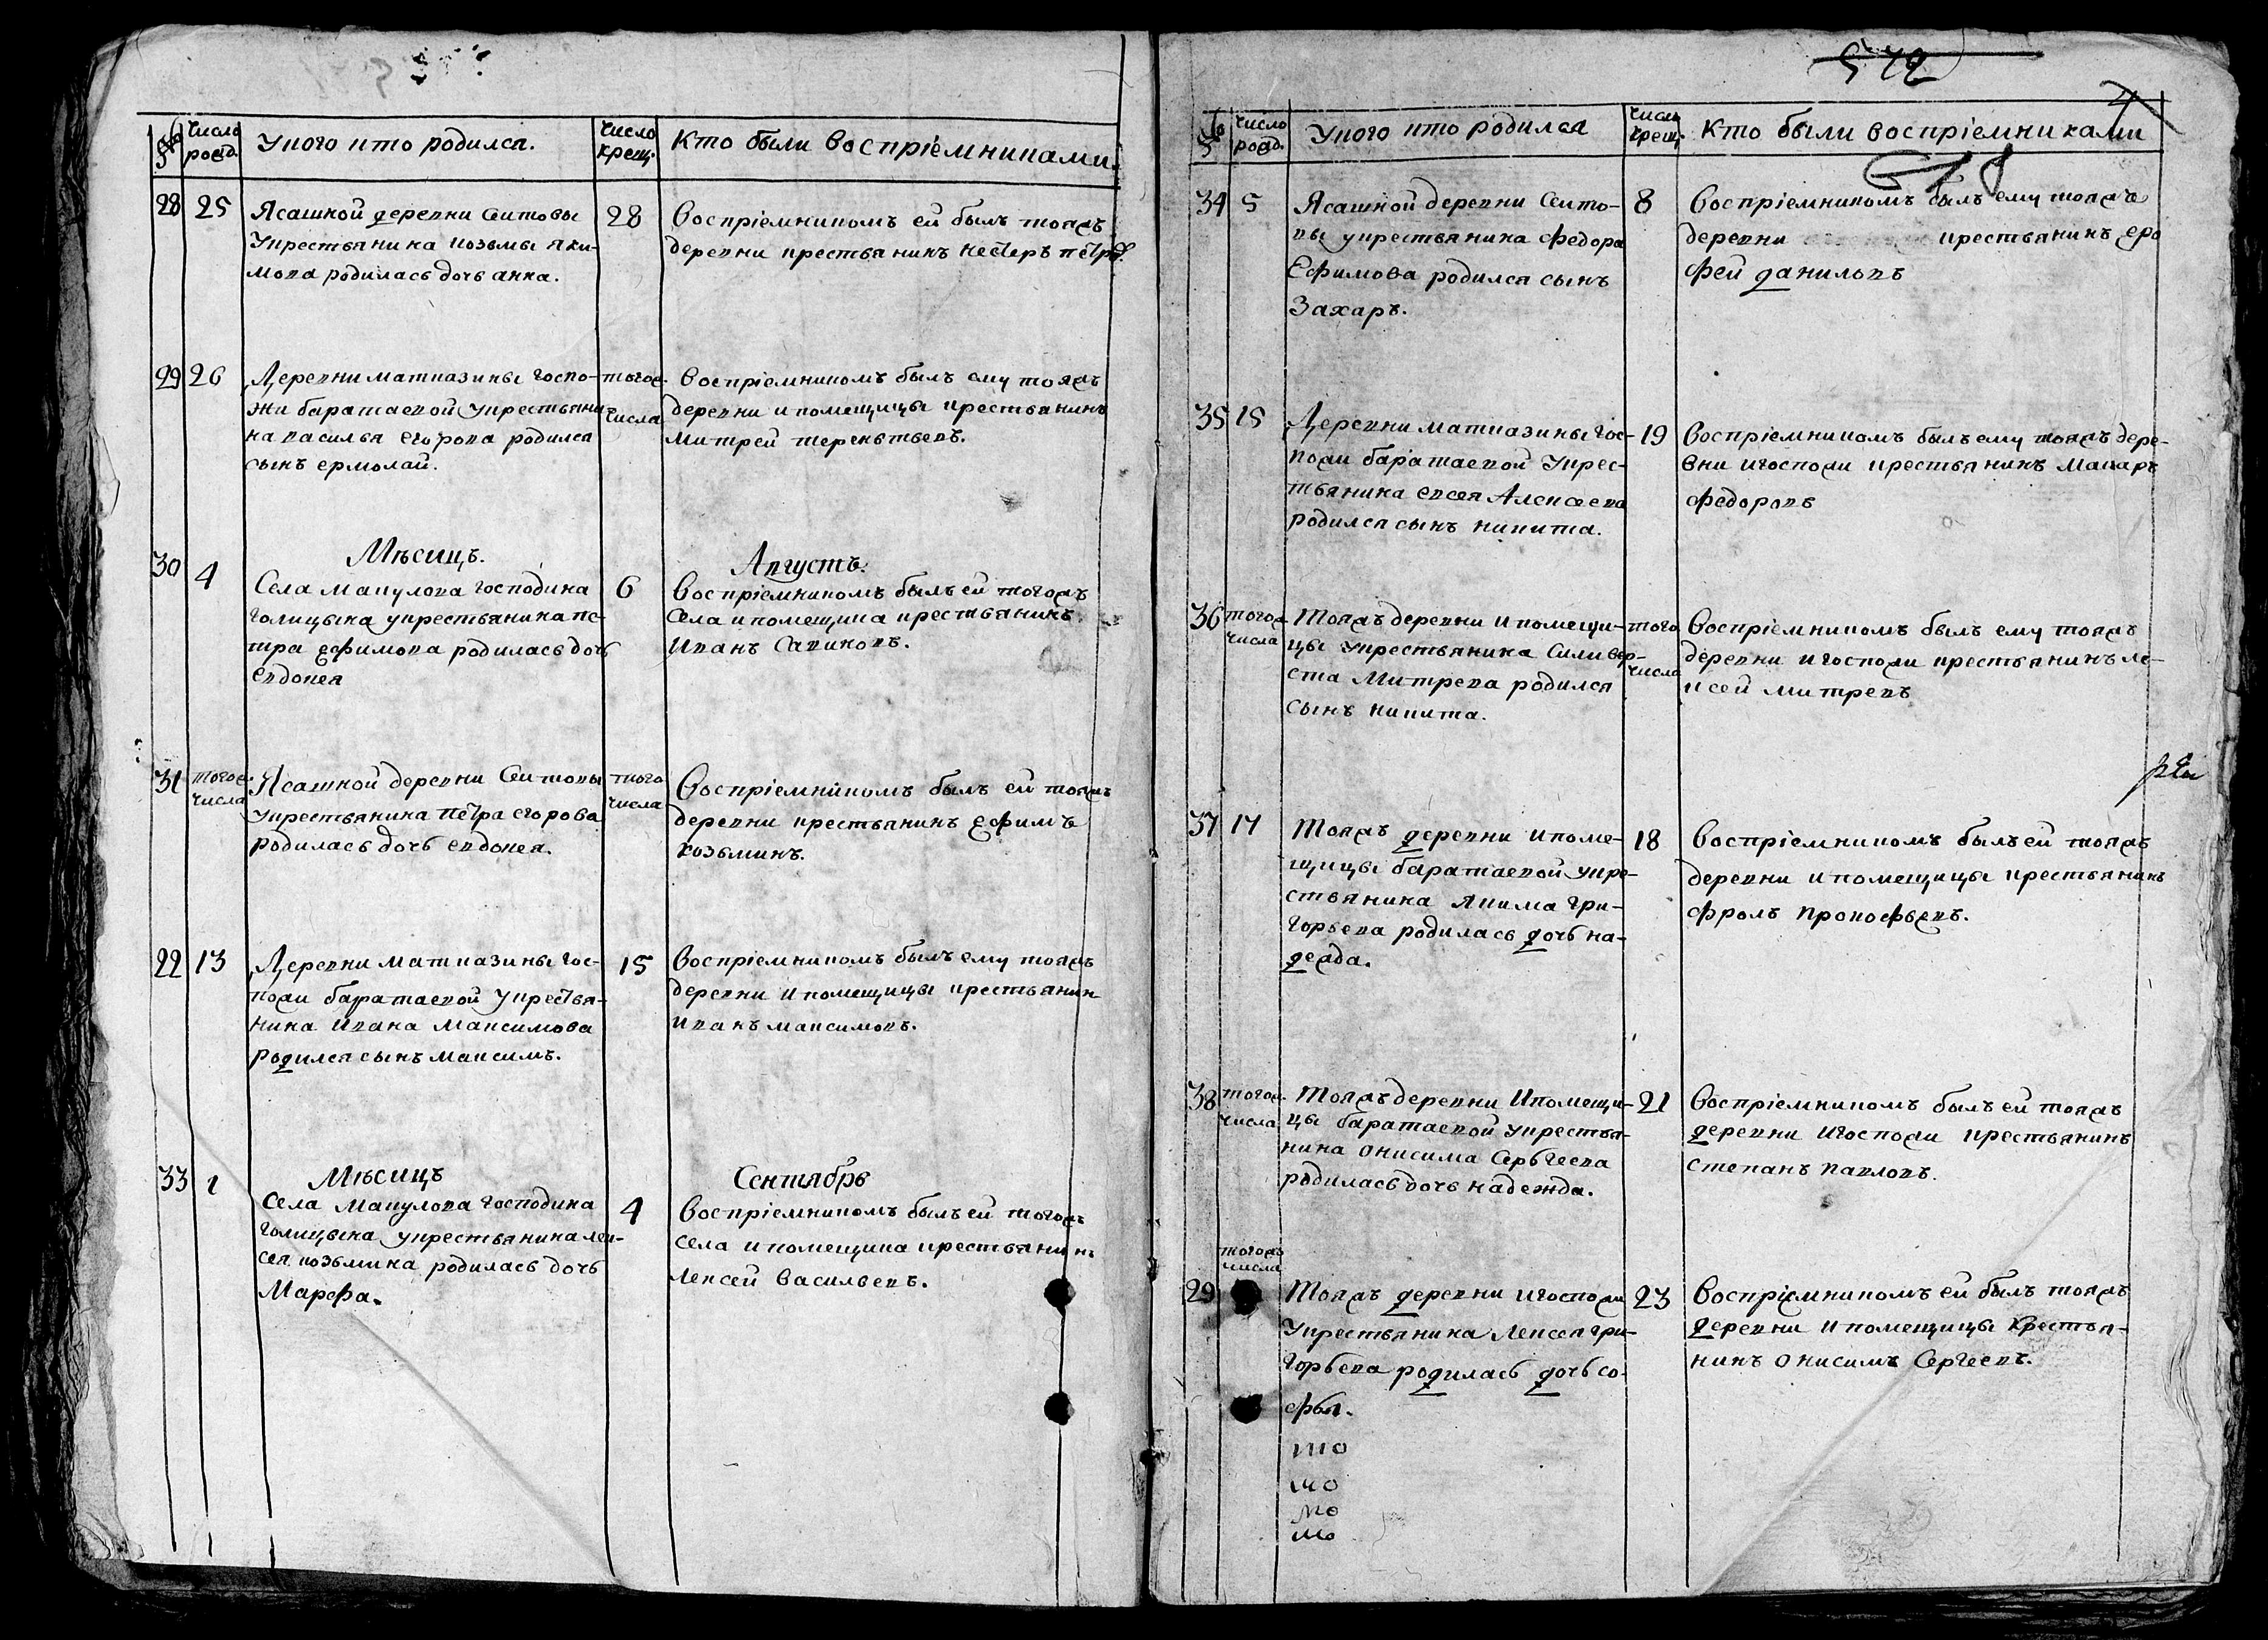 №
число рожд.
У кого кто родился.
число крещ.
Кто были воспріемниками.
28
25
Ясашной деревни Сеитовы
у крестьянина козьмы яки-
мова родилась дочь анна.
28
воспріемникомъ ей былъ тояжъ
деревни крестьянинъ нестеръ петро.
29
26
Деревни матказины госпо-
жи баратаевой у крестьяни-
на василья егорова родился
сынъ ермолай.
тогож.
числа
воспріемникомъ былъ ему тояжъ
деревни и помещицы крестьянинъ
митрей терентьевъ.
Мѣсицъ.
Августъ.
30
4
Села макулова господина
голицына у крестьянина пе-
тра ефимова родилась дочь
евдокея
6
воспріемникомъ былъ ей тогожъ
села и помещика крестьянинъ
Иванъ Савиновъ.
31
тогож.
числа
Ясашной деревни Сеитовы
у крестьянина петра егорова
родилась дочь евдокея.
того
числа
воспріемникомъ былъ ей тояжъ
деревни крестьянинъ ефимъ
козьминъ.
22
13
Деревни матказины гос-
пожи баратаевой у крестья-
нина ивана максимова
родился сынъ максимъ.
15
воспріемникомъ былъ ему тояжъ
деревни и помещицы крестьянин
иванъ максимовъ.
Мѣсицъ
Сентябрь
33
1
Села Макулова господина
голицына у крестьянина лек-
сея козьмина родилась дочь
Марфа.
4
воспріемникомъ былъ ей тогожъ
села и помещика крестьянинъ
Лексей васильевъ.
572
4
№
число рожд.
У кого кто родился
число крещ.
Кто были воспріемниками
34
5
Ясашной деревни Сеито-
вы у крестьянина федора
Ефимова родился сынъ
Захаръ.
8
воспріемникомъ былъ ему тояжъ
деревни крестьянинъ еро
фей даниловъ
35
15
Деревни матказины гос-
пожи баратаевой у крес-
тьянина евсея Алексеева
родился сынъ никита.
19
воспріемникомъ былъ ему тояжъ дере-
вни и госпожи крестьянинъ макаръ
федоровъ
36
тогож
числа
Тояжъ деревни и помещи-
цы у крестьянина Сильвер-
ста Митрева родился
сынъ никита.
того
числа
воспріемникомъ былъ ему тояжъ
деревни и госпожи крестьянинъ ле-
ксей митревъ
37
17
Тояжъ деревни и поме-
щицы баратаевой у кре-
стьянина Якима гри-
горьева родилась дочь на-
дежда.
18
воспріемникомъ былъ ей тояжъ
деревни и помещицы крестьянинъ
фролъ прокофьевъ.
38
тогож.
числа
Тояжъ деревни и помещи-
цы баратаевой у крестья-
нина онисима Серьгеева
родилась дочь надежда.
21
воспріемникомъ былъ ей тояжъ
деревни и госпожи крестьянинъ
степанъ павловъ.
29
тогожъ
числа
Тояжъ деревни и госпожи
у крестьянина Лексея гри-
горьева родилась дочь со-
фья.
23
воспріемникомъ ей былъ тояжъ
деревни и помещицы крестья-
нинъ онисимъ Сергеевъ.